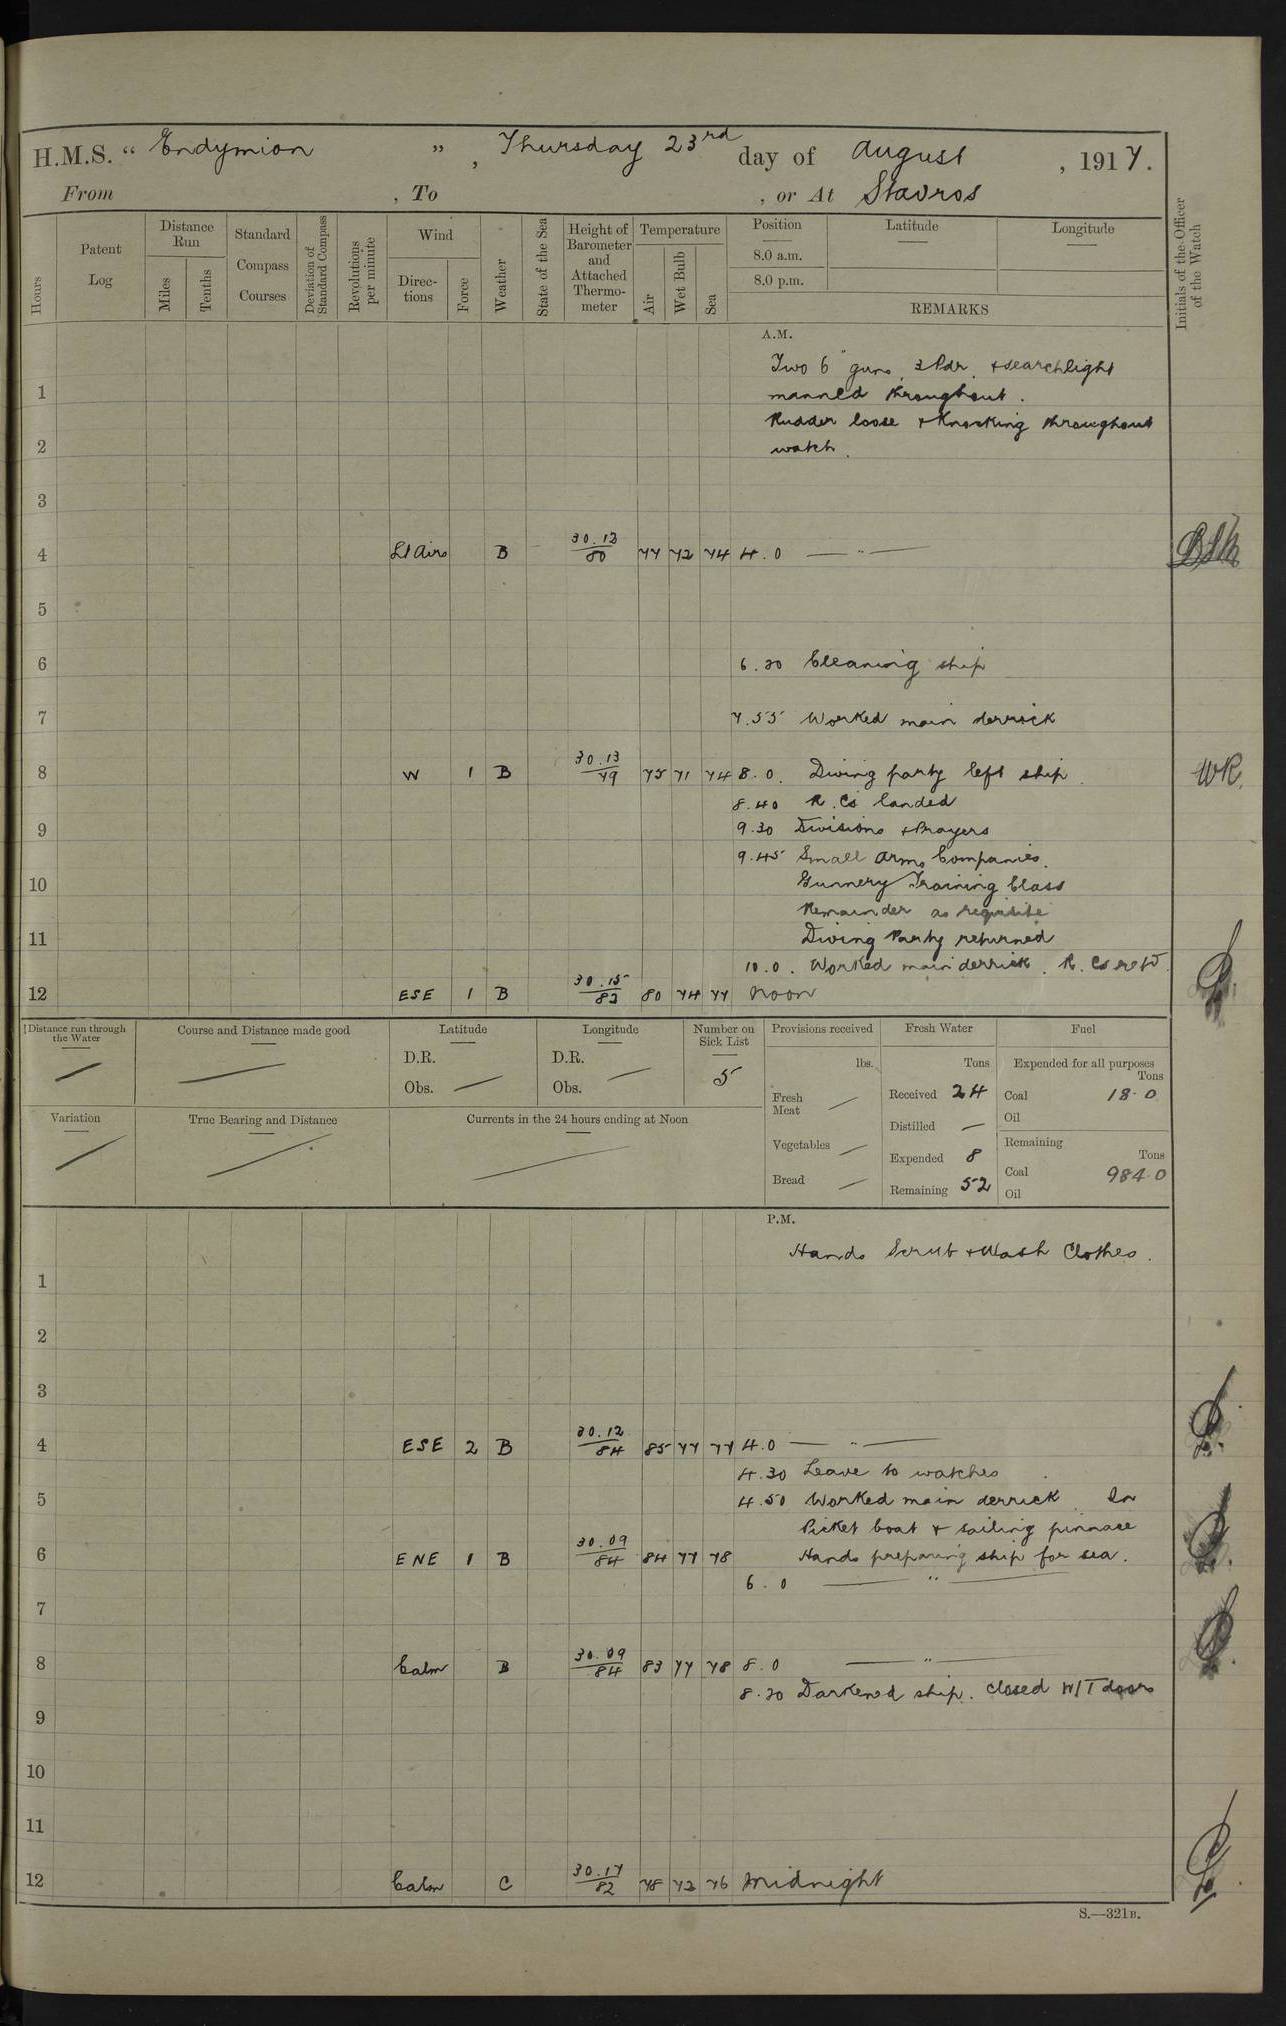 H.M.S. “ Endymion ” , Thursday 23rd day of August , 1917.
From , To , or At Stavros
Hours
Patent Log
Distance Run
Miles
Tenths
Standard Compass Courses
Deviation of Standard Compass
Revolutions per minute
Wind
Direc-tions
Force
Weather
State of the Sea
Height of Barometer and Attached Thermo-meter
Temperature
Air
Wet Bulb
Sea
Position
8.0 a.m.
8.0 p.m.
Latitude
Longitude
REMARKS
Initials of the Officer of the Watch
A.M.
Two 6" guns, 3 Pdr. + searchlight
1 manned throughout.
Rudder loose + Knocking throughout
2 watch.
3
4 Lt Airs B 30.12/80 77 72 74 4.0 — " —
5
6 6.20 Cleaning ship
7 7.55 Worked main derrick
8 W 1 B 30.13/79 75 71 74 8.0. Diving party left ship WR.
8.40 R.Cs landed
9 9.30 Divisions + Prayers
9.45 Small Arms Companies.
10 Gunnery Training Class
Remainder as requisite
11 Diving Party returned
10.0. Worked main derrick. R.Cs retd.
12 ESE 1 B 30.15/82 80 74 77 Noon
Distance run through the Water
Course and Distance made good
Latitude
D.R.
Obs.
Longitude
D.R.
Obs.
Number on Sick List
5
Variation
True Bearing and Distance
Currents in the 24 hours ending at Noon
Provisions received
lbs.
Fresh Meat —
Vegetables —
Bread —
Fresh Water
Tons
Received 24
Distilled —
Expended 8
Remaining 52
Fuel
Expended for all purposes
Tons
Coal 18.0
Oil
Remaining
Tons
Coal 984.0
Oil
P.M.
Hands Scrub + Wash Clothes.
1
2
3
4 ESE 2 B 30.12/84 85 77 77 4.0 — " —
4.30 Leave to watches
5 4.50 Worked main derrick. In
Picket boat + sailing pinnace
6 ENE 1 B 30.09/84 84 77 78 Hands preparing ship for sea.
6.0 — " —
7
8 Calm B 30.09/84 83 77 78 8.0 — " —
8.20 Darkened ship. Closed W/T doors
9
10
11
12 Calm C 30.17/82 78 72 76 Midnight
S.—321B.